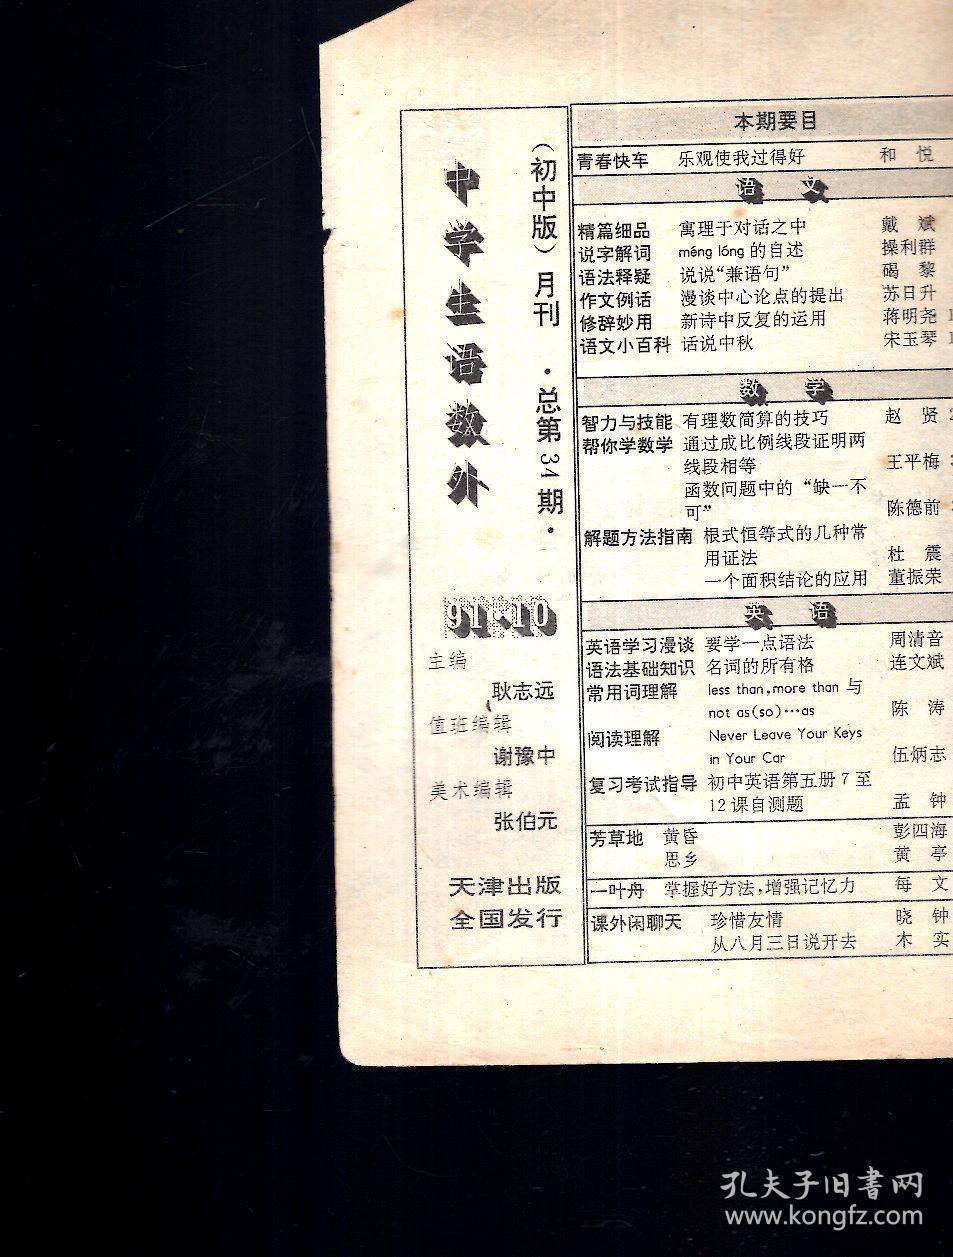 中学生语数外
（初中版）月刊 ·总第34期·
91·10
主编
耿志远
值班编辑
谢豫中
美术编辑
张伯元
天津出版
全国发行
本期要目
青春快车 乐观使我过得好 和 悦
语 文
精篇细品 寓理于对话之中 戴 斌
说字解词 méng lóng 的自述 操利群
语法释疑 说说“兼语句” 碣 黎
作文例话 漫谈中心论点的提出 苏日升
修辞妙用 新诗中反复的运用 蒋明尧 1
语文小百科 话说中秋 宋玉琴 1
数 学
智力与技能 有理数简算的技巧 赵 贤 2
帮你学数学 通过成比例线段证明两
线段相等 王平梅
函数问题中的“缺一不
可” 陈德前
解题方法指南 根式恒等式的几种常
用证法 杜 震
一个面积结论的应用 董振荣
英 语
英语学习漫谈 要学一点语法 周清音
语法基础知识 名词的所有格 连文斌
常用词理解 less than,more than 与
not as(so)…as 陈 涛
阅读理解 Never Leave Your Keys
in Your Car 伍炳志
复习考试指导 初中英语第五册7至
12课自测题 孟 钟
芳草地 黄昏 彭四海
思乡 黄 亭
一叶舟 掌握好方法,增强记忆力 每 文
课外闲聊天 珍惜友情 晓 钟
从八月三日说开去 木 实
孔夫子旧書网
www.kongfz.com